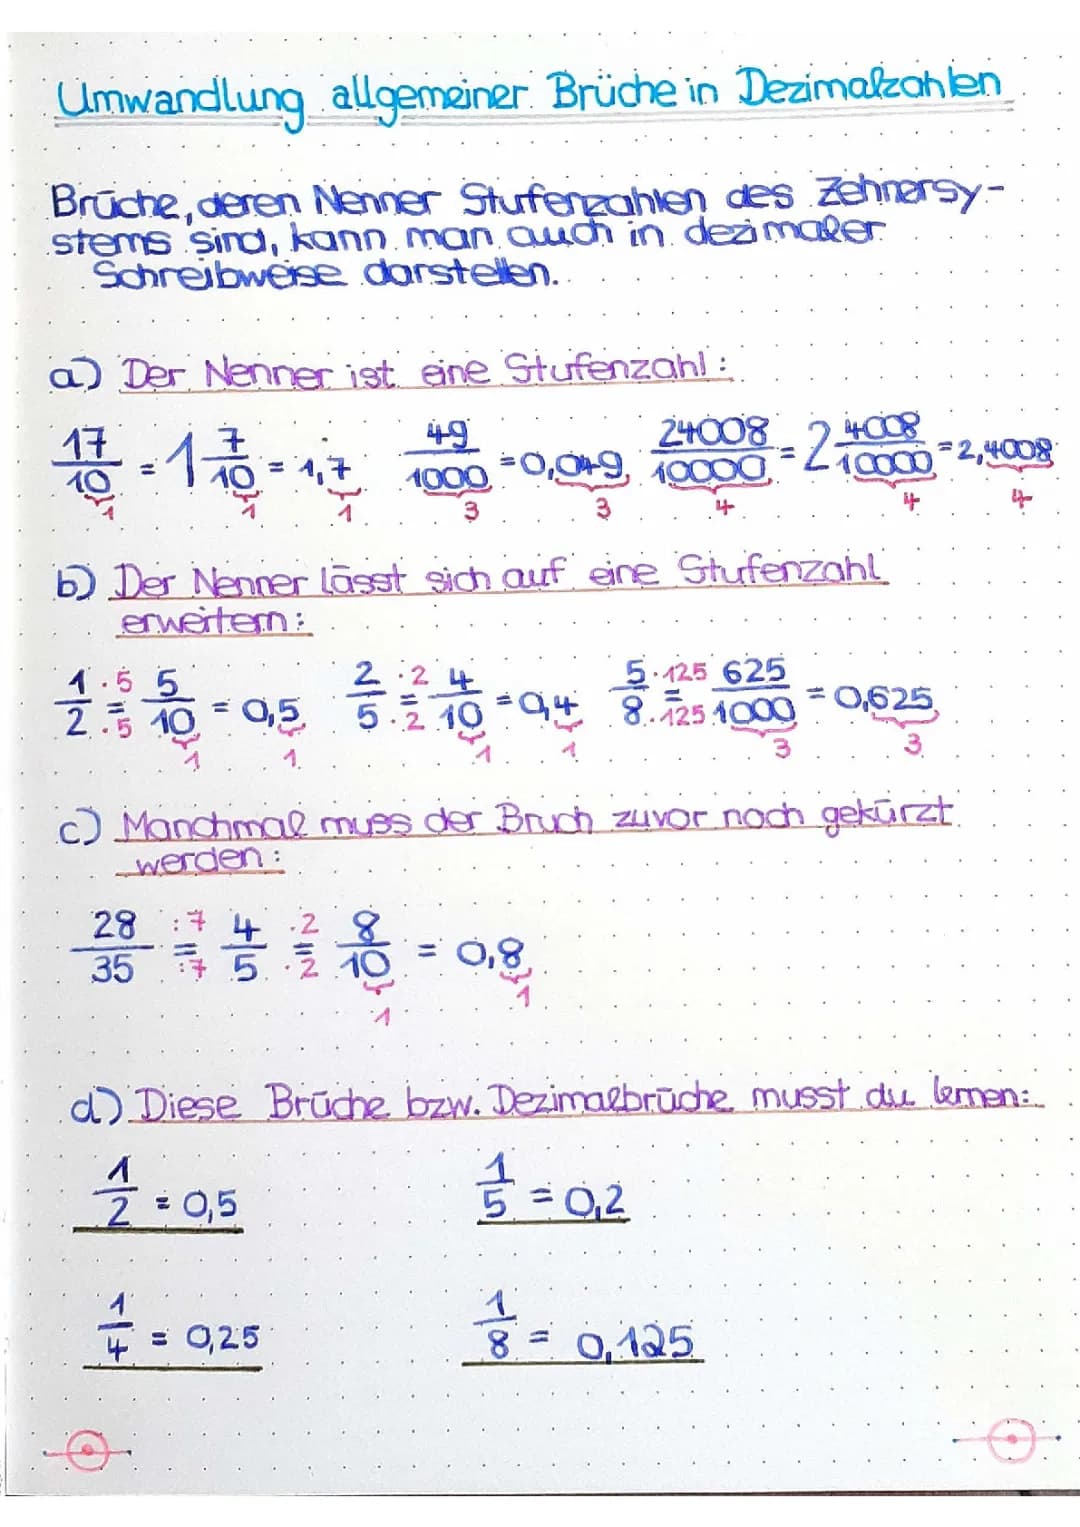 Umwandlung allgemeiner Brüche in Dezimalzahlen
Brüche, deren Nenner Stufenzahlen des Zehnersy-
stems sind, kann man auch in dezimaler
Schreibweise darstellen.
a) Der Nenner ist eine Stufenzahl:
17/10 = 1 7/10 = 1,7   49/1000 = 0,049   24008/10000 = 2 4008/10000 = 2,4008
1 1 1 3 3 4 4 4
b) Der Nenner lässt sich auf eine Stufenzahl
erweitern:
1/2 ·5 = ·5 5/10 = 0,5   2/5 ·2 = ·2 4/10 = 0,4   5/8 ·125 = ·125 625/1000 = 0,625
1 1 1 1 3 3
c) Manchmal muss der Bruch zuvor noch gekürzt
werden:
28/35 :7 = :7 4/5 ·2 = ·2 8/10 = 0,8
1 1
d) Diese Brüche bzw. Dezimalbrüche musst du lernen:
1/2 = 0,5   1/5 = 0,2
1/4 = 0,25   1/8 = 0,125